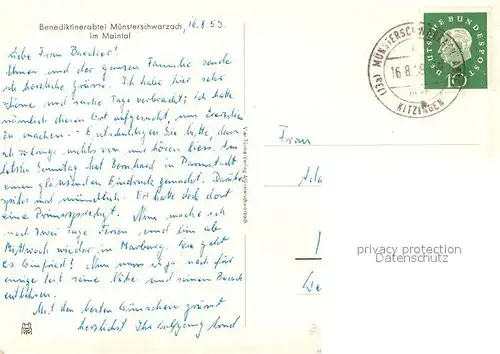 Benediktinerabtei Münsterschwarzach,
im Maintal
16.8.59.
Liebe Frau Baecker!
Ihnen und der ganzen Familie sende
ich herzliche Grüsse. Ich habe hier sehr
schöne und reiche Tage verbracht; ich hatte
nämlich diesen Ort aufgesucht, um Exerzitien
zu machen. - Entschuldigen Sie bitte, dass
ich so lange nichts von mir hören liess. Am
letzten Sonntag hat Bernhard in Darmstadt
einen glänzenden Eindruck gemacht. Darüber
später mal mündlich. Er hatte sich dort
eine Primizpredigt. Nun mache ich
noch zwei Tage Ferien und bin ab
Mittwoch wieder in Marburg. Wie geht
es Winfried? Nun muss ich ja noch für
einige Zeit seine Nähe und seinen Besuch
entbehren.
Mit den besten Wünschen grüsst
herzlichst Ihr Wolfgang
DEUTSCHE BUNDESPOST
10
(13a) MÜNSTERSCHWARZACH
16.8.59
KITZINGEN
Frau
privacy protection
Datenschutz